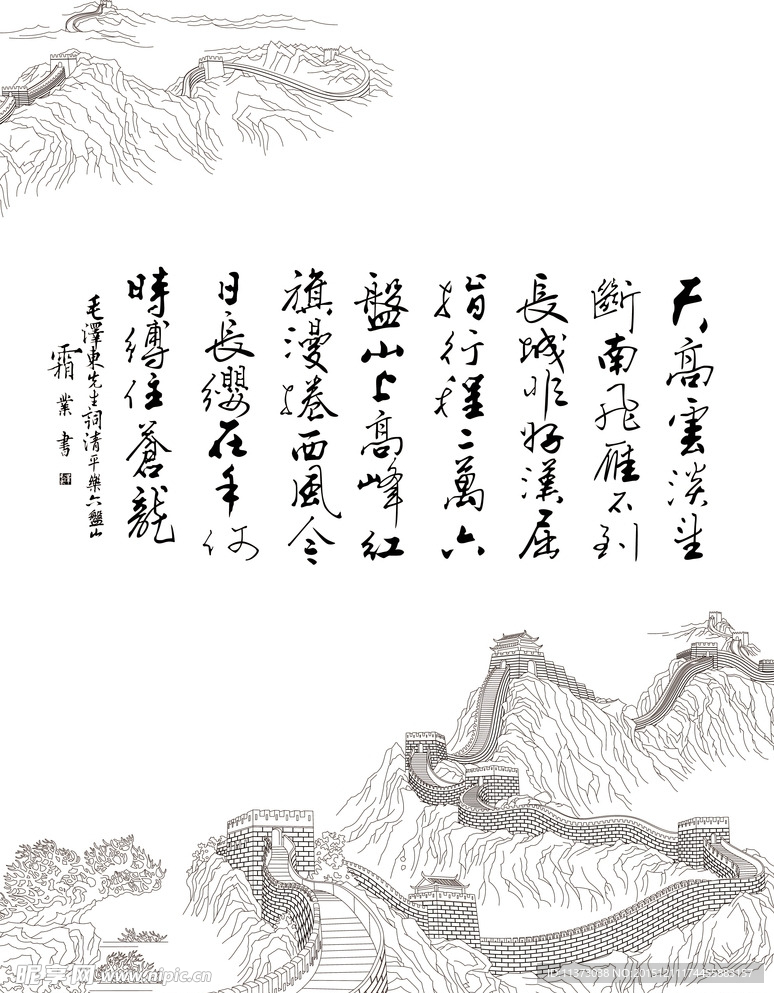 天高雲淡望
斷南飛雁不到
長城非好漢屈
指行程二萬六
盤山上高峰紅
旗漫捲西風今
日長纓在手何
時縛住蒼龍
毛澤東先生詞清平樂六盤山
霜業書
昵享网 www.nipic.cn
ID:11373038 NO:20151211174455883157